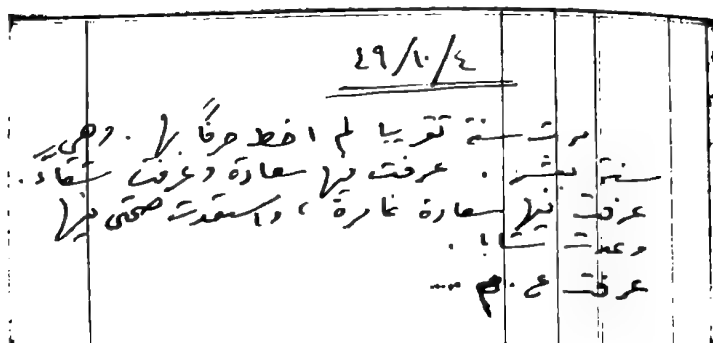 ٤٩/١٠/٤
مرت سنة تقريبا لم اخط حرفًا بها. وهي
سنة بشر. عرفت فيها سعادة وعرفت شقاءً.
عرفت فيها سعادة غامرة، واستعدت صحتي فيها
وعدت شابا.
عرفت ع. م ...